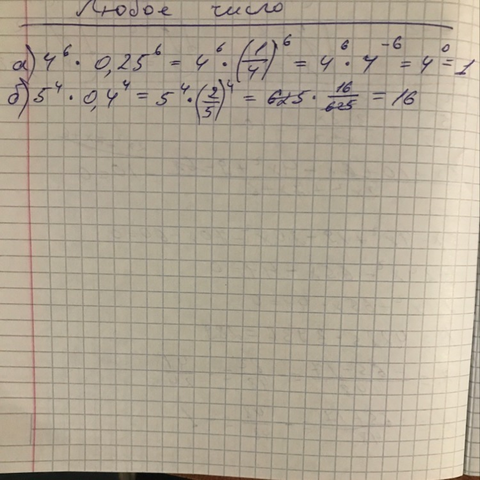 Любое число
а) 4⁶ · 0,25⁶ = 4⁶ · (1/4)⁶ = 4⁶ · 4⁻⁶ = 4⁰ = 1
б) 5⁴ · 0,4⁴ = 5⁴ · (2/5)⁴ = 625 · 16/625 = 16